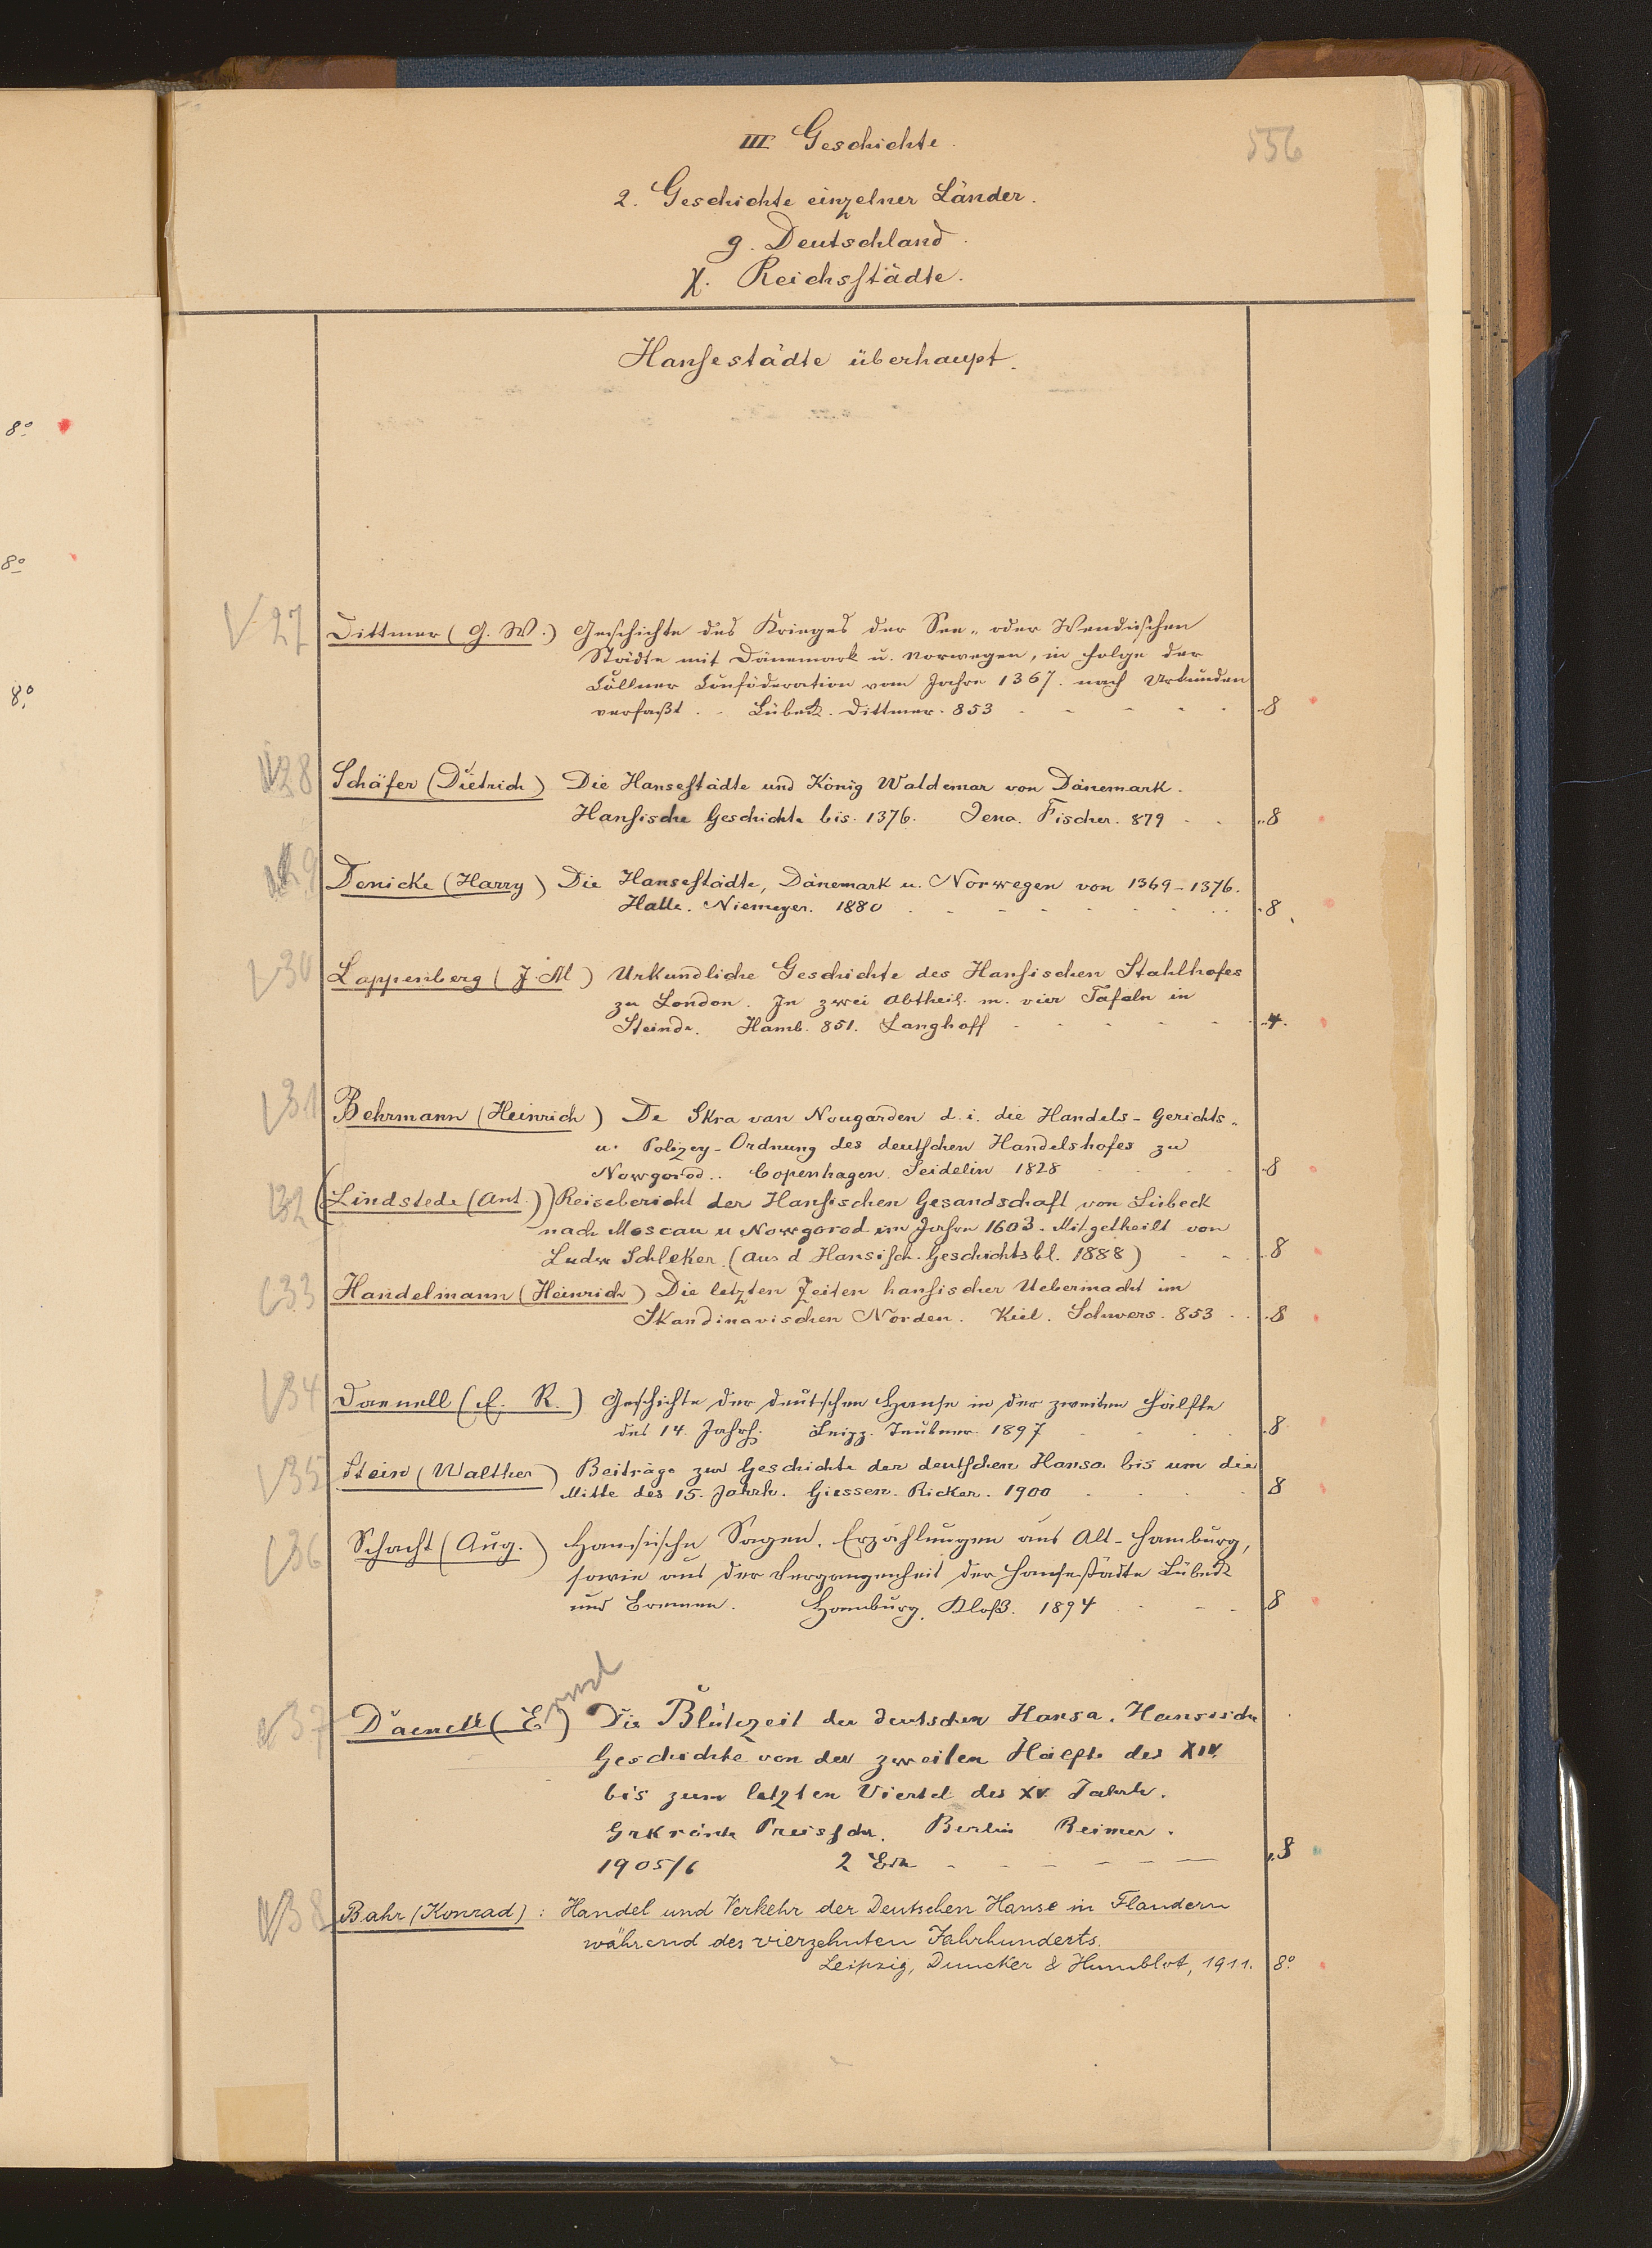 8º
8º
8º
556
III Geschichte.
2. Geschichte einzelner Länder.
g. Deutschland.
χ. Reichsstädte.
Hansestädte überhaupt.
27 Dittmer (G. W.) Geschichte des Krieges der See- oder Wendischen
Städte mit Dänemark u. Norwegen, in Folge der
Cöllner Conföderation vom Jahre 1367. nach Urkunden
verfaßt. - Lübeck. Dittmer. 853 8
28 Schäfer (Dietrich) Die Hansestädte und König Waldemar von Dänemark.
Hansische Geschichte bis 1376. Jena. Fischer. 879 8
29 Denicke (Harry) Die Hansestädte, Dänemark u. Norwegen von 1369-1376.
Halle. Niemeyer. 1880 8
30 Lappenberg (J. M) Urkundliche Geschichte des Hansischen Stahlhofes
zu London. In zwei Abtheil. m. vier Tafeln in
Steindr. Hamb. 851. Langhoff 4.
31 Behrmann (Heinrich) De Skra van Nougarden d. i. die Handels- Gerichts-
u. Polizey-Ordnung des deutschen Handelshofes zu
Nowgorod.. Copenhagen. Seidelin 1828 8
32 (Lindstede (Ant.)) Reisebericht der Hansischen Gesandschaft von Lübeck
nach Moscau u Nowgorod im Jahre 1603. Mitgetheilt von
Ludw Schleker. (Aus d Hansisch. Geschichtsbl. 1888) 8
33 Handelmann (Heinrich) Die letzten Zeiten hansischer Uebermacht im
Skandinavischen Norden. Kiel. Schwers. 853 8
34 Daenell (E. R.) Geschichte der deutschen Hanse in der zweiten Hälfte
des 14. Jahrh. Leipz. Teubner. 1897 8
35 Stein (Walther) Beiträge zur Geschichte der deutschen Hansa bis um die
Mitte des 15. Jahrh. Giessen. Ricker. 1900 8
36 Schacht (Aug.) Hansische Sagen. Erzählungen aus Alt-Hamburg,
sowie aus der Vergangenheit der Hansestädte Lübeck
und Bremen. Hamburg. Kloß. 1894 8
37 Daenell (Ernst) Die Blütezeit der deutschen Hansa. Hansische
Geschichte von der zweiten Hälfte des XIV.
bis zum letzten Viertel des XV Jahrh.
Gekrönte Preisschr. Berlin Reimer.
1905/6 2 8
38 Bahr (Konrad): Handel und Verkehr der Deutschen Hanse in Flandern
während des vierzehnten Jahrhunderts.
Leipzig, Duncker & Humblot, 1911. 8º.